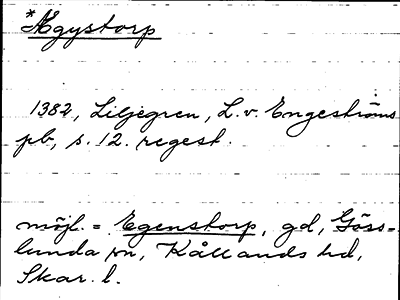 *Ågystorp
1382, Liljegren, L. v. Engeströms
pb, s. 12. regest.
möjl. = Egenstorp, gd, Göss-
lunda sn, Kållands hd,
Skar. l.